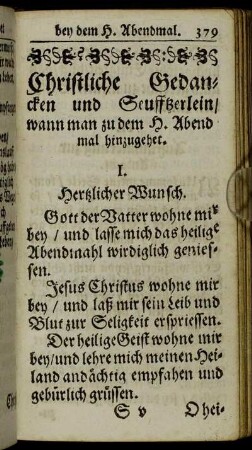 bey dem H. Abendmal. 379
Christliche Gedan-
cken und Seufftzerlein/
wann man zu dem H. Abend
mal hinzugehet.
I.
Hertzlicher Wunsch.
Gott der Vatter wohne mir
bey / und lasse mich das heilige
Abendmahl wirdiglich geniess-
sen.
Jesus Christus wohne mir
bey / und laß mir sein Leib und
Blut zur Seligkeit erspriessen.
Der heilige Geist wohne mir
bey/und lehre mich meinen Hei-
land andächtig empfahen und
gebürlich grüssen.
S v O hei-